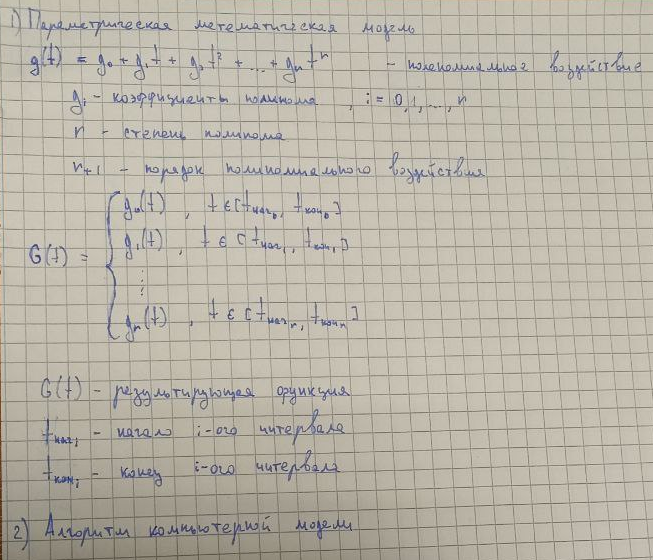 1) Параметрическая метематическая модель
g(t) = g₀ + g₁t + g₂t² + ... + gₙtⁿ - полиномиальное воздействие
gᵢ - коэффициенты полинома , i = 0,1,...,n
n - степень полинома
n+1 - порядок полиномиального воздействия
g₀(t) , t ∈ [t нач₀, t кон₀]
g₁(t) , t ∈ [t нач₁, t кон₁]
G(t) =
⋮
gₙ(t) , t ∈ [t начₙ, t конₙ]
G(t) - результирующая функция
t начᵢ - начало i-ого интервала
t конᵢ - конец i-ого интервала
2) Алгоритм компьютерной модели